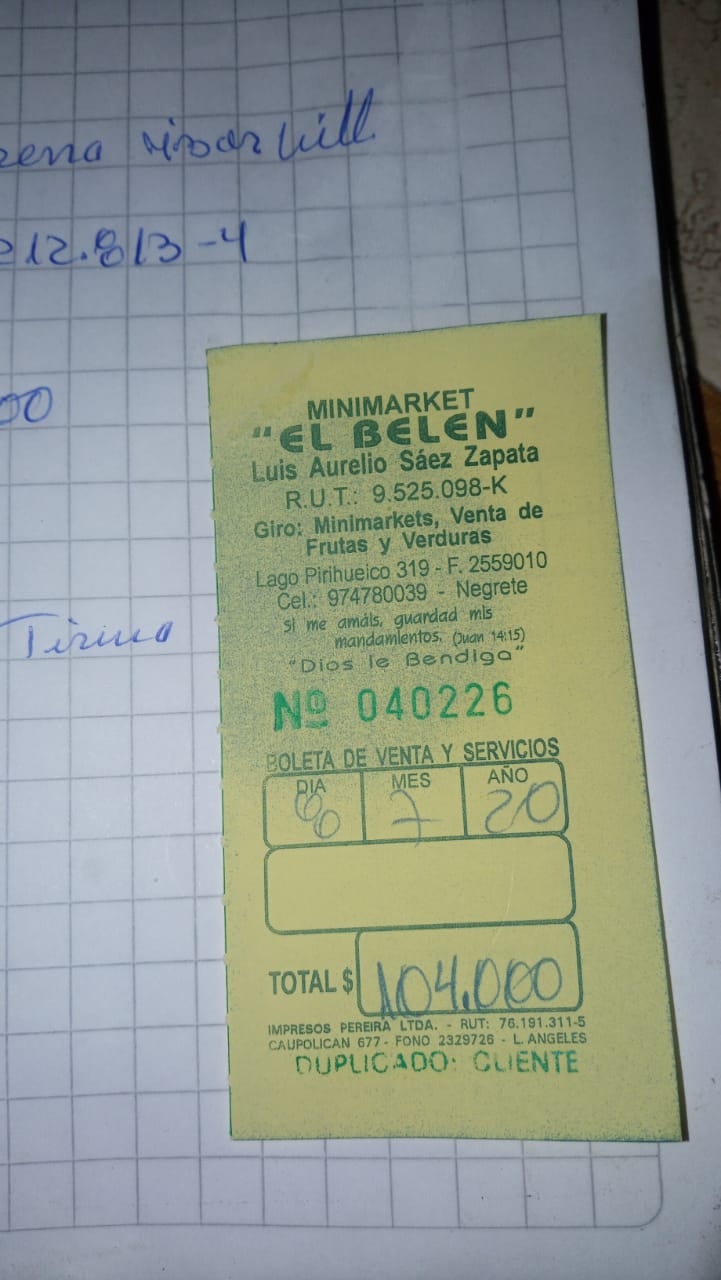 212.813-4
00
Tirino
MINIMARKET
"EL BELEN"
Luis Aurelio Sáez Zapata
R.U.T.: 9.525.098-K
Giro: Minimarkets, Venta de
Frutas y Verduras
Lago Pirihueico 319 - F. 2559010
Cel.: 974780039 - Negrete
si me amáis, guardad mis
mandamientos. (Juan 14:15)
"Dios le Bendiga"
Nº 040226
BOLETA DE VENTA Y SERVICIOS
DIA MES AÑO
7 20
TOTAL $ 104.000
IMPRESOS PEREIRA LTDA. - RUT: 76.191.311-5
CAUPOLICAN 677 - FONO 2329726 - L. ANGELES
DUPLICADO: CLIENTE